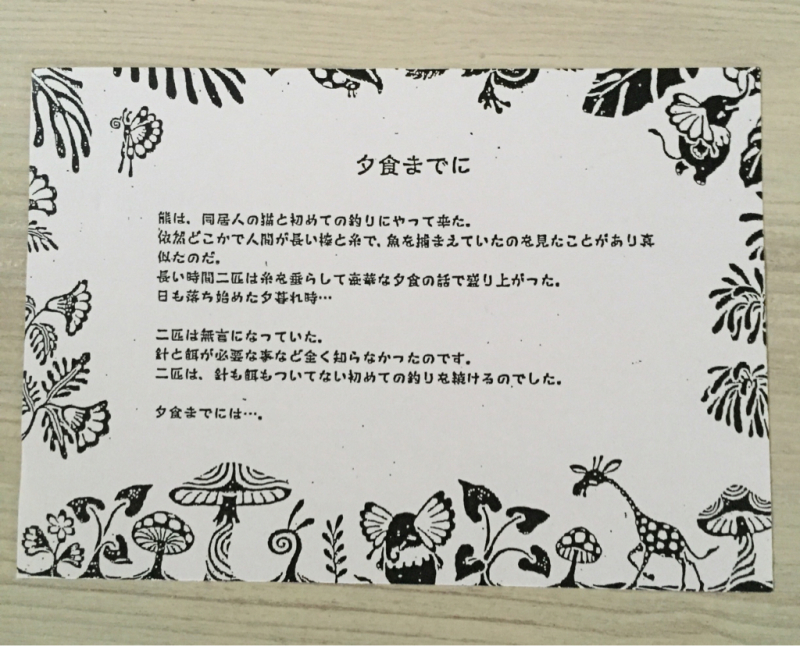 夕食までに
熊は、同居人の猫と初めての釣りにやって来た。
依然どこかで人間が長い棒と糸で、魚を捕まえていたのを見たことがあり真
似たのだ。
長い時間二匹は糸を垂らして豪華な夕食の話で盛り上がった。
日も落ち始めた夕暮れ時…
二匹は無言になっていた。
針と餌が必要な事など全く知らなかったのです。
二匹は、針も餌もついてない初めての釣りを続けるのでした。
夕食までには…。